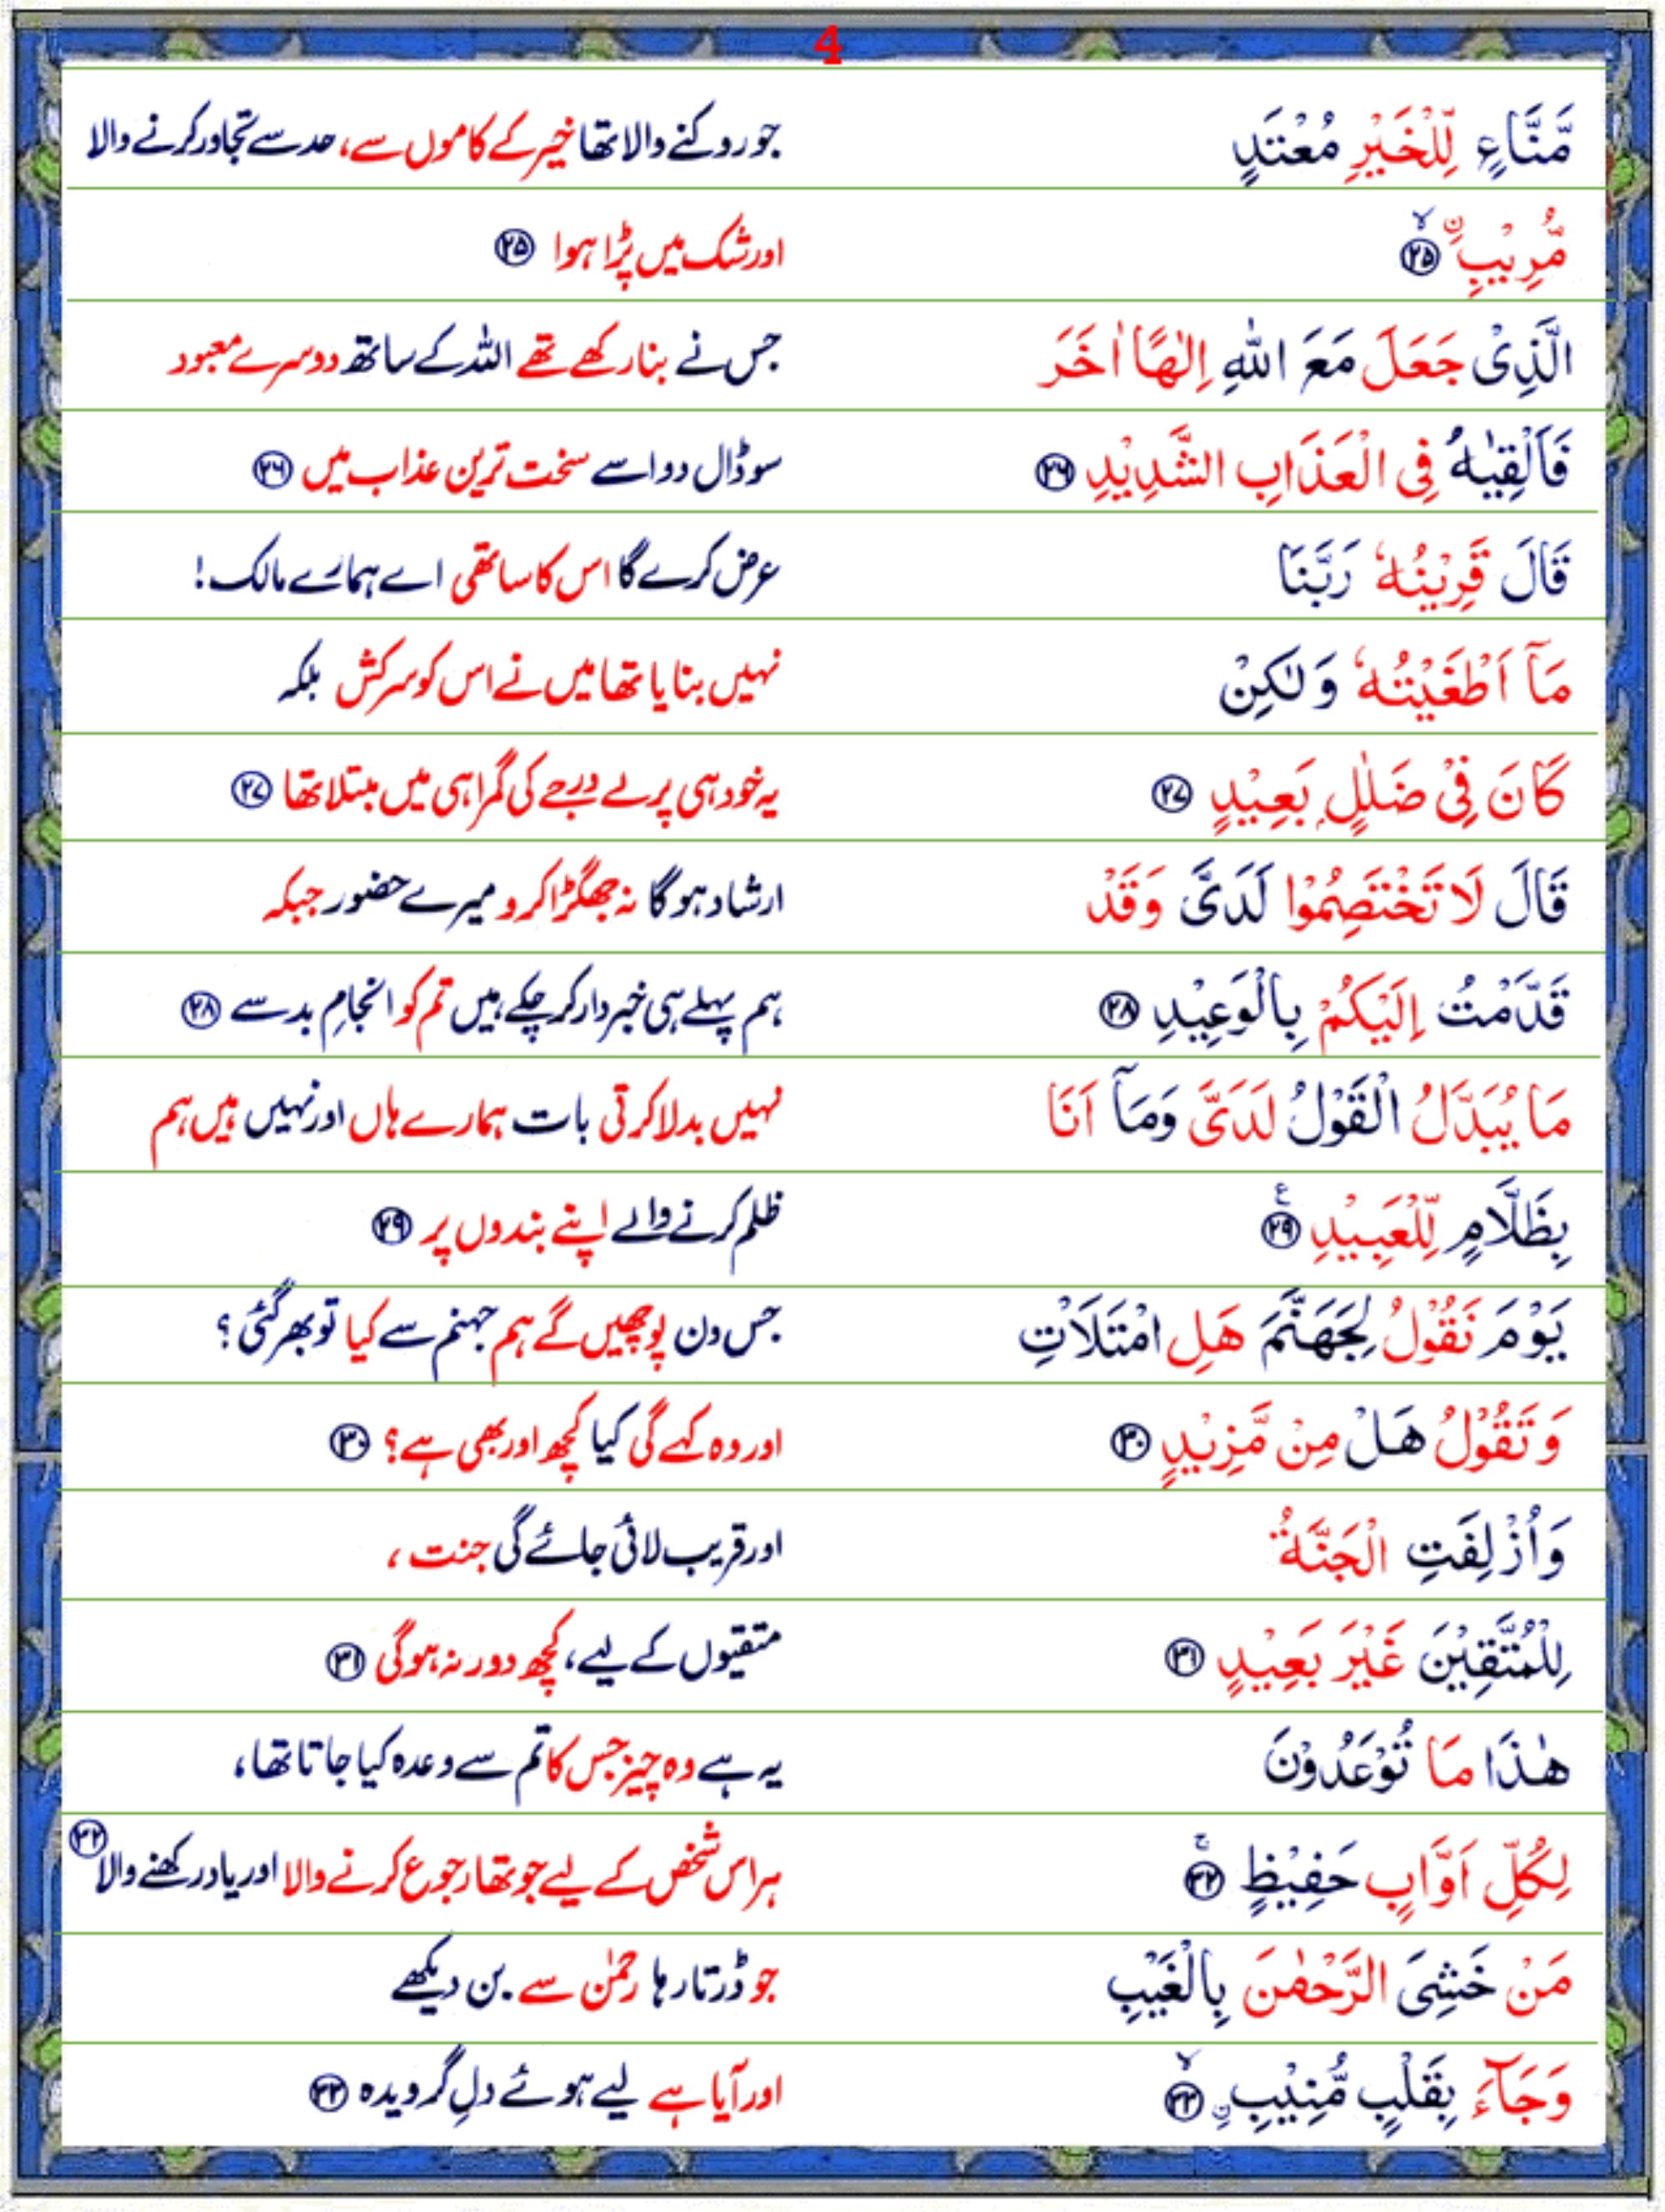 4
مَّنَّاعٍ لِّلْخَيْرِ مُعْتَدٍ جو روکنے والا تھا خیر کے کاموں سے، حد سے تجاوز کرنے والا
مُّرِيْبِ ۙ‏﴿۲۵﴾ اور شک میں پڑا ہوا ﴿۲۵﴾
الَّذِىْ جَعَلَ مَعَ اللّٰهِ اِلٰهًا اٰخَرَ جس نے بنا رکھے تھے اللہ کے ساتھ دوسرے معبود
فَاَلْقِيٰهُ فِى الْعَذَابِ الشَّدِيْدِ ﴿۲۶﴾ سو ڈال دو اسے سخت ترین عذاب میں ﴿۲۶﴾
قَالَ قَرِيْنُهٗ رَبَّنَا عرض کرے گا اس کا ساتھی اے ہمارے مالک!
مَاۤ اَطْغَيْتُهٗ وَلٰكِنْ نہیں بنایا تھا میں نے اس کو سرکش بلکہ
كَانَ فِىْ ضَلٰلٍۢ بَعِيْدٍ ﴿۲۷﴾ یہ خود ہی پرلے درجے کی گمراہی میں مبتلا تھا ﴿۲۷﴾
قَالَ لَا تَخْتَصِمُوْا لَدَىَّ وَقَدْ ارشاد ہو گا نہ جھگڑا کرو میرے حضور جبکہ
قَدَّمْتُ اِلَيْكُمْ بِالْوَعِيْدِ ﴿۲۸﴾ ہم پہلے ہی خبردار کر چکے ہیں تم کو انجامِ بد سے ﴿۲۸﴾
مَا يُبَدَّلُ الْقَوْلُ لَدَىَّ وَمَاۤ اَنَا نہیں بدلا کرتی بات ہمارے ہاں اور نہیں ہیں ہم
بِظَلَّامٍ لِّلْعَبِيْدِ ﴿۲۹﴾ ع ظلم کرنے والے اپنے بندوں پر ﴿۲۹﴾
يَوْمَ نَقُوْلُ لِجَهَنَّمَ هَلِ امْتَلَاْتِ جس دن پوچھیں گے ہم جہنم سے کیا تو بھر گئی؟
وَتَقُوْلُ هَلْ مِنْ مَّزِيْدٍ ﴿۳۰﴾ اور وہ کہے گی کیا کچھ اور بھی ہے؟ ﴿۳۰﴾
وَاُزْلِفَتِ الْجَنَّةُ اور قریب لائی جائے گی جنت،
لِلْمُتَّقِيْنَ غَيْرَ بَعِيْدٍ ﴿۳۱﴾ متقیوں کے لیے، کچھ دور نہ ہو گی ﴿۳۱﴾
هٰذَا مَا تُوْعَدُوْنَ یہ ہے وہ چیز جس کا تم سے وعدہ کیا جاتا تھا،
لِكُلِّ اَوَّابٍ حَفِيْظٍ ۚ‏﴿۳۲﴾ ہر اس شخص کے لیے جو تھا رجوع کرنے والا اور یاد رکھنے والا ﴿۳۲﴾
مَنْ خَشِىَ الرَّحْمٰنَ بِالْغَيْبِ جو ڈرتا رہا رحمٰن سے بن دیکھے
وَجَآءَ بِقَلْبٍ مُّنِيْبِ ۙ‏﴿۳۳﴾ اور آیا ہے لیے ہوئے دلِ گرویدہ ﴿۳۳﴾